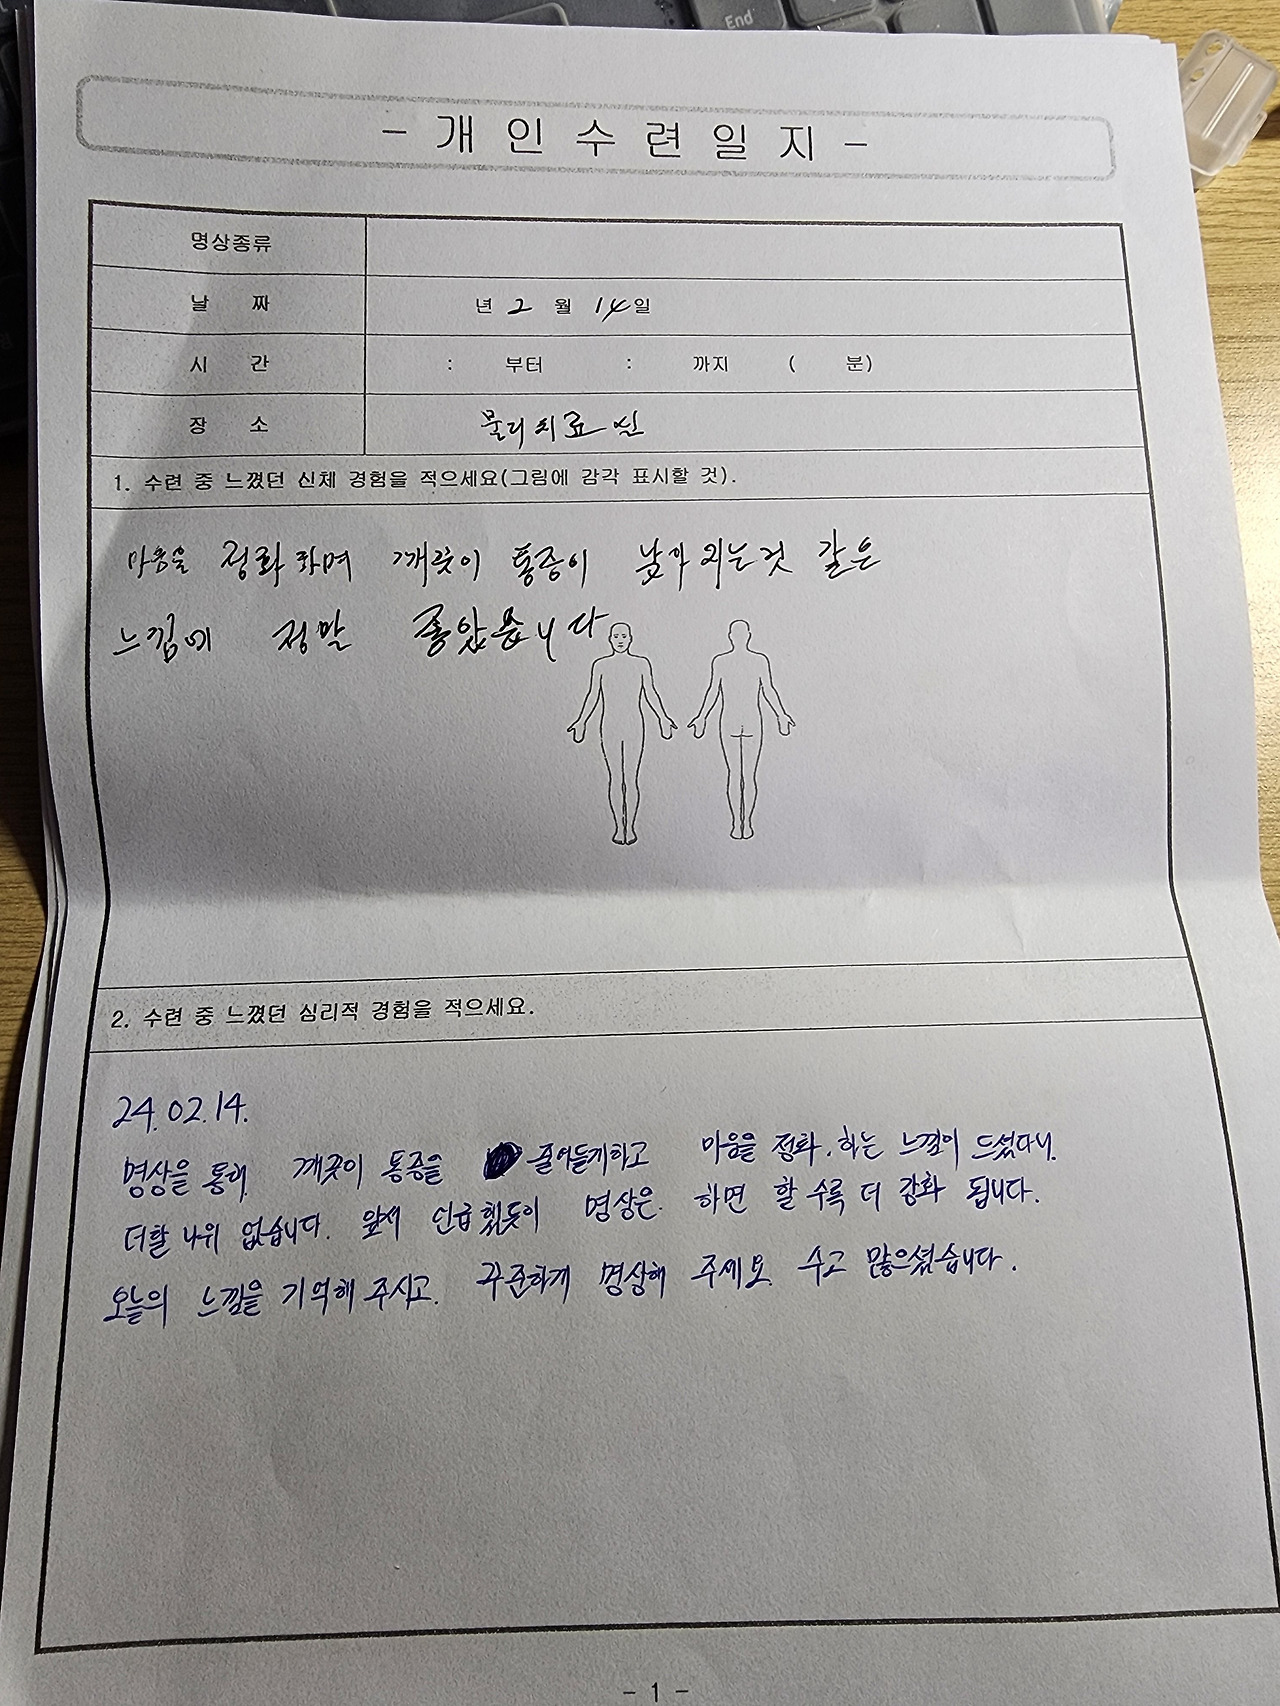 End
- 개 인 수 련 일 지 -
명상종류
날 짜 년 2 월 14일
시 간 : 부터 : 까지 ( 분)
장 소 물리치료실
1. 수련 중 느꼈던 신체 경험을 적으세요(그림에 감각 표시할 것).
마음을 정화하며 깨끗이 통증이 낳아지는것 같은
느낌에 정말 좋았읍니다
2. 수련 중 느꼈던 심리적 경험을 적으세요.
24.02.14.
명상을 통해 깨끗이 통증을 줄어들게하고 마음을 정화.하는 느낌이 드셨다니
더할 나위 없습니다. 앞서 언급했듯이 명상은 하면 할 수록 더 강화 됩니다.
오늘의 느낌을 기억해 주시고. 꾸준하게 명상해 주세요. 수고 많으셨습니다.
- 1 -